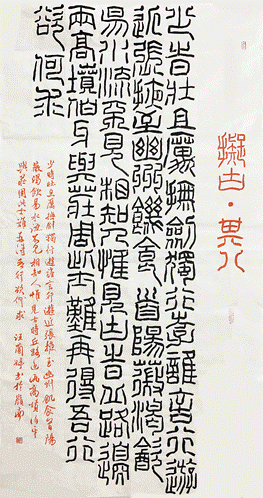 擬古·其八
少時壯且厲撫劍獨行遊誰言行遊
近張掖至幽州飢食首陽薇渴飲
易水流不見相知人惟見古時丘路邊
兩高墳伯牙與莊周此士難再得吾行
欲何求
少時壯且厲撫劍獨行遊誰言行遊近張掖至幽州飢食首陽
薇渴飲易水流不見相知人惟見古時丘路邊兩高墳伯牙
與莊周此士難再得吾行欲何求